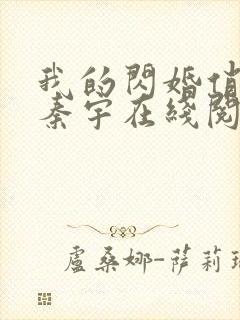 我的閃婚俏
秦宇在綫閱
盧桑娜-薩莉瑞